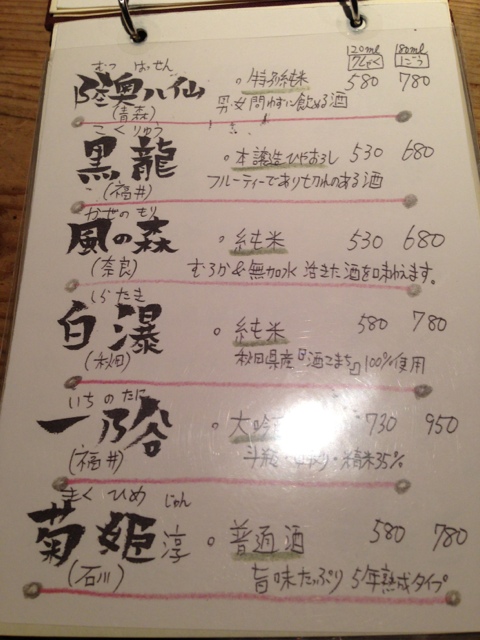 120ml 180ml
7しゃく 1ごう
むつ はっせん
陸奥八仙 。特別純米 580 780
(青森) 男女問わずに飲める酒
こくりゅう
黒龍 。本醸造ひやおろし 530 680
(福井) フルーティーであり切れのある酒
かぜのもり
風の森 。純米 530 680
(奈良) むろか&無加水 活きた酒を味わえます。
しらたき
白瀑 。純米 580 780
(秋田) 秋田県産『酒こまち』100%使用
いちのたに
一乃谷 。大吟 730 950
(福井) 斗瓶 ・精米35%
きくひめ じゅん
菊姫 淳 。普通酒 580 780
(石川) 旨味たっぷり 5年熟成タイプ